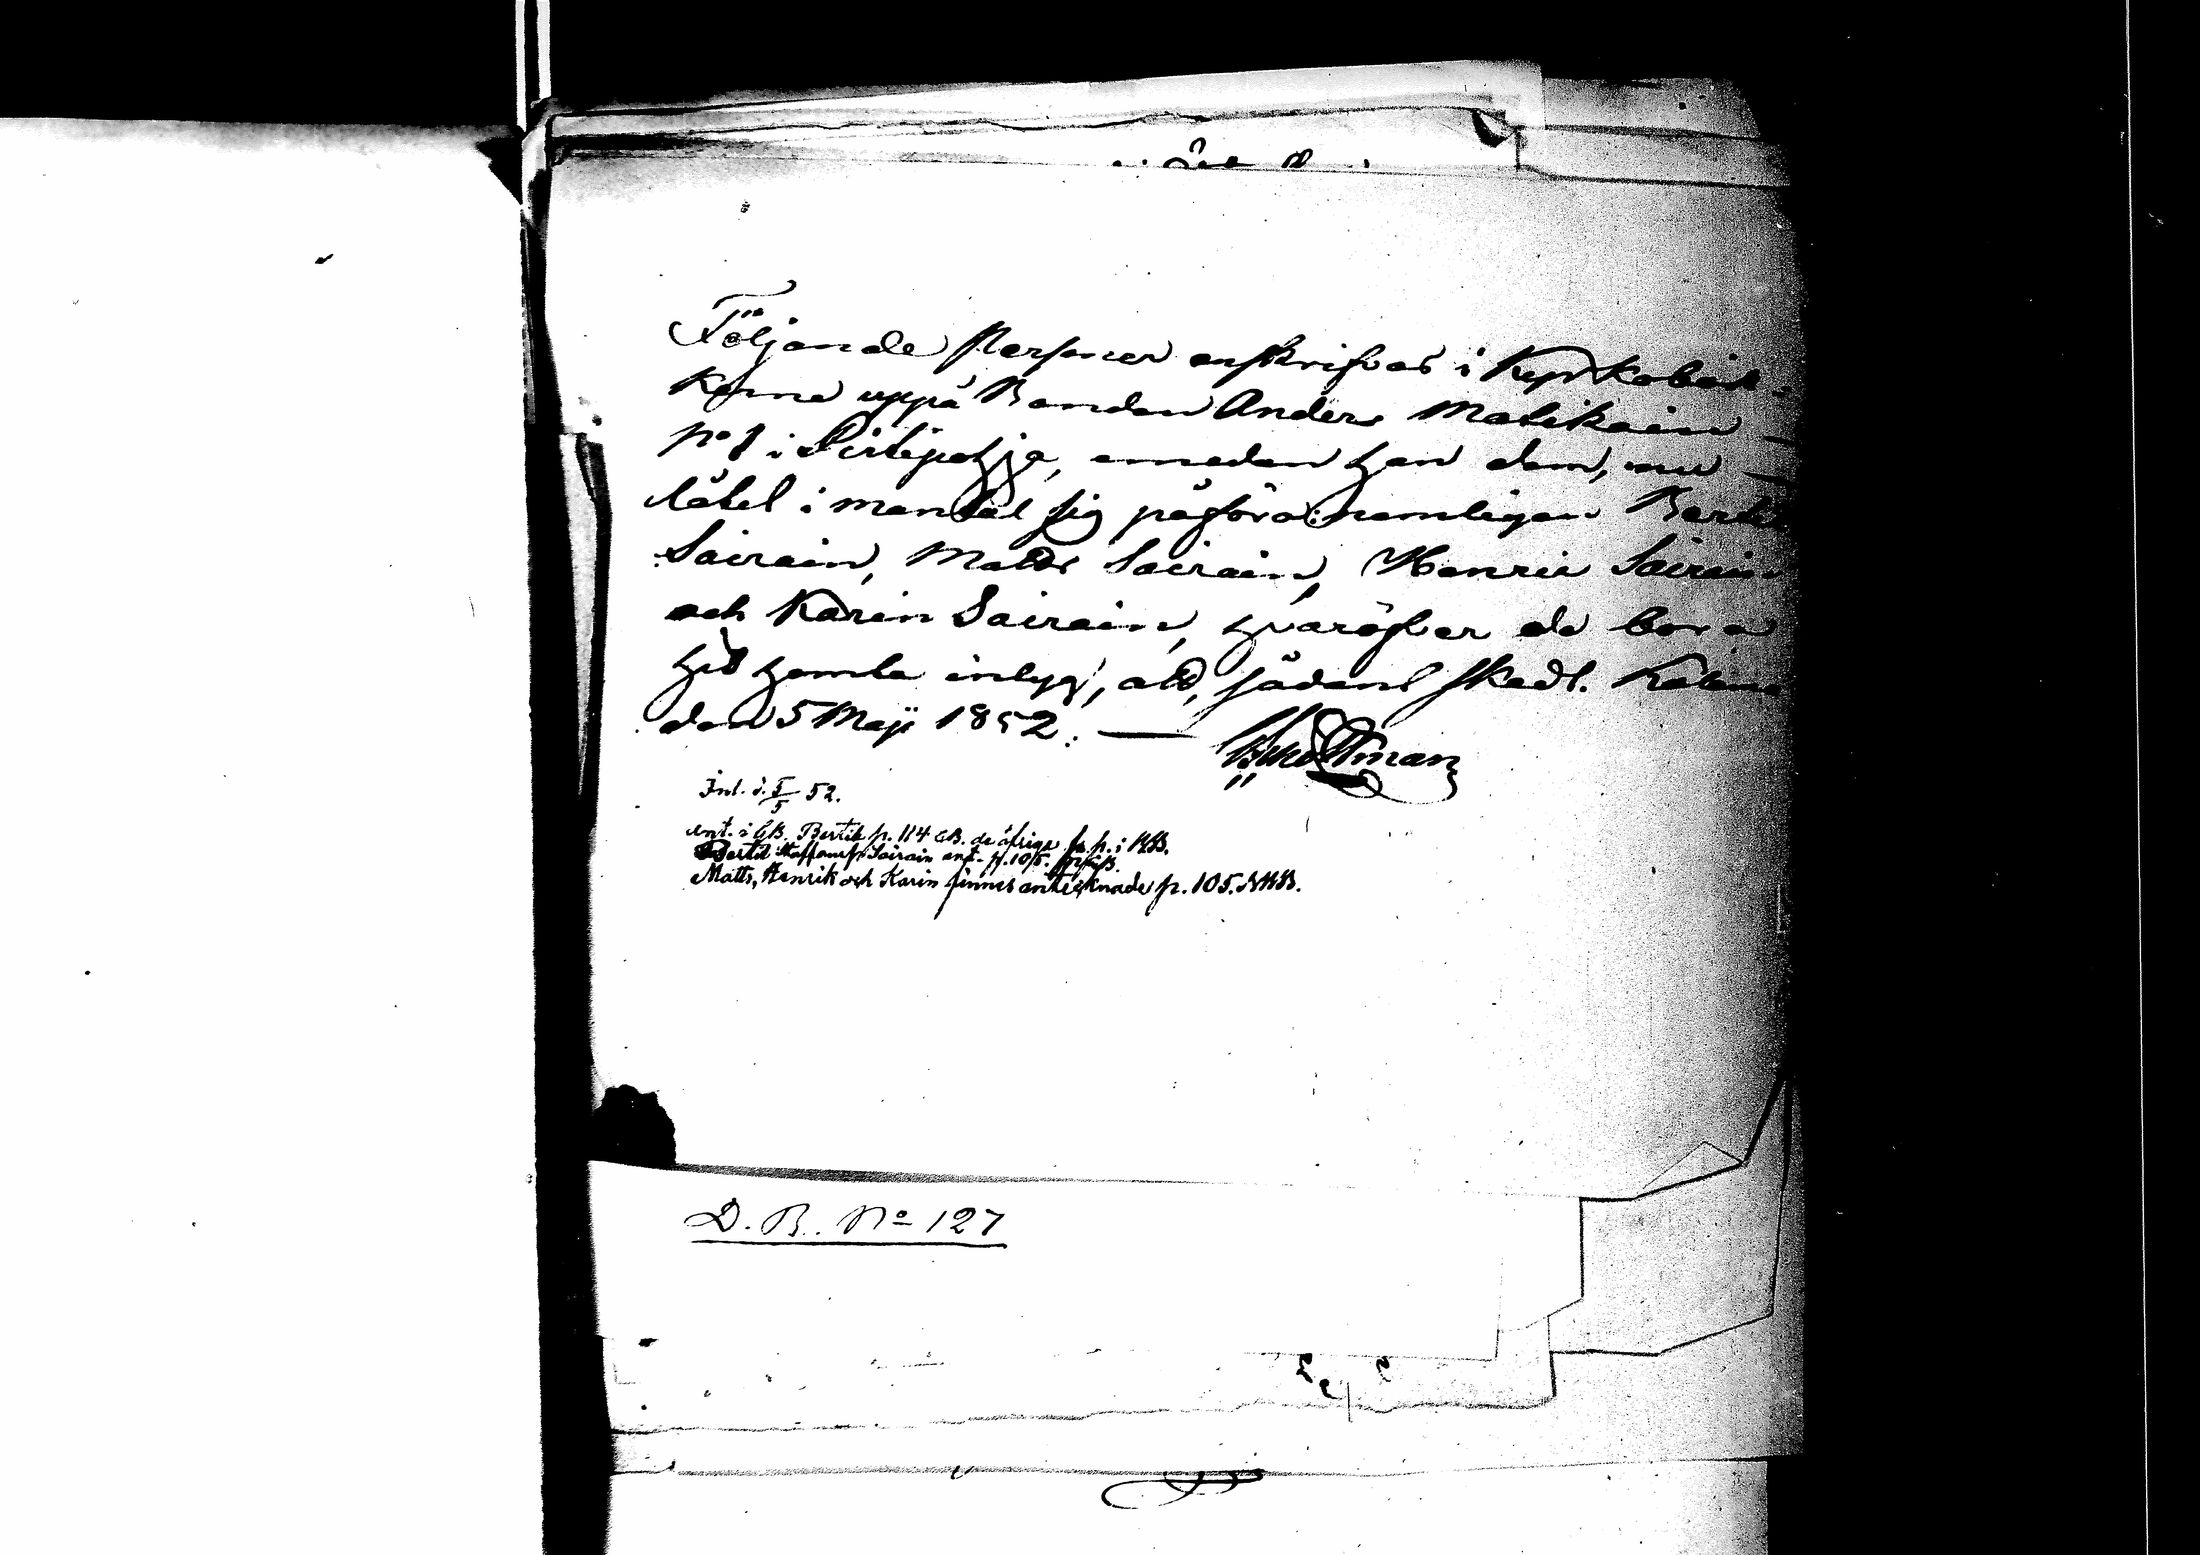 Följande personer anskrifvas i Kyrkoböc-
kerne uppå Bonden Anders Matikain
No 1 i Pirtipohja, emedan han dem, nu
låtit i mantal sig påföra: nemligen Bertil
Sairain, Matts Sairain, Henric Sairain
och Karin Sairain, hvaröfver de bora
hit hemta intyg, att, sådant skedt.
den 5 Maji 1852.
Inl. d. 5/5 52.
Ant. i GB. Bertil p. 114 GB. de öfriga i
Bertil Sairain ant. p. 105.
Matts, Henrik och Karin finnes antecknade p. 105. NKB.
D. B. No 127